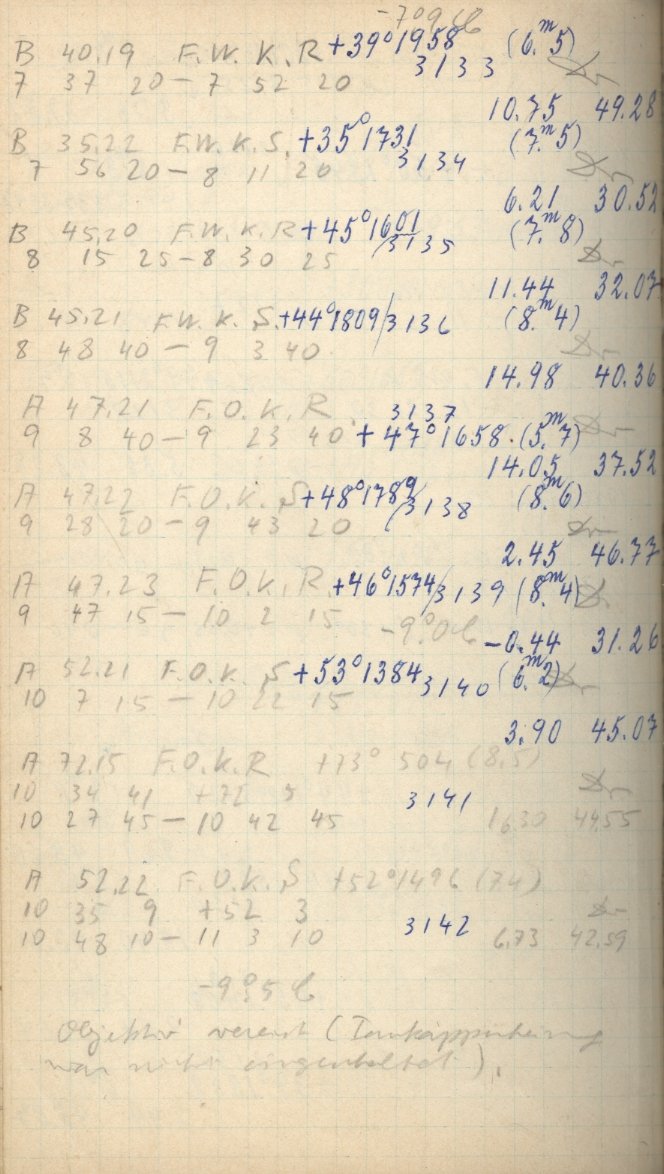 -7°9 C
B 40.19 F.W.K.R +39°1958 (6.m5)
7 37 20 - 7 52 20 3133
10.75 49.28
B 35.22 F.W.K.S. +35°1731 (7.m5)
7 56 20 - 8 11 20 3134
6.21 30.52
B 45.20 F.W.K.R +45°1601 (7.m8)
8 15 25 - 8 30 25 3135
11.44 32.07
B 45.21 F.W.K.S. +44°1809/3136 (8.m4)
8 48 40 - 9 3 40
14.98 40.36
A 47.21 F.O.K.R. 3137
9 8 40 - 9 23 40 +47°1658. (5.m7)
14.05 37.52
A 47.22 F.O.K.S +48°1789/3138 (8.m6)
9 28 20 - 9 43 20
2.45 46.77
A 47.23 F.O.K.R. +46°1574/3139 (8.m4)
9 47 15 - 10 2 15 -9°0 C
-0.44 31.26
A 52.21 F.O.K.S +53°1384 3140 (6.m2)
10 7 15 - 10 22 15
3.90 45.07
A 72.15 F.O.K.R +73° 504 (8.5)
10 34 41 +72 3141
10 27 45 - 10 42 45 16.30 44.55
A 52.22 F.O.K.S +52°1496 (7.4)
10 35 9 +52 3 3142
10 48 10 - 11 3 10 6.73 42.59
-9°5 C
Objektiv vereist (
war nicht eingeschaltet).